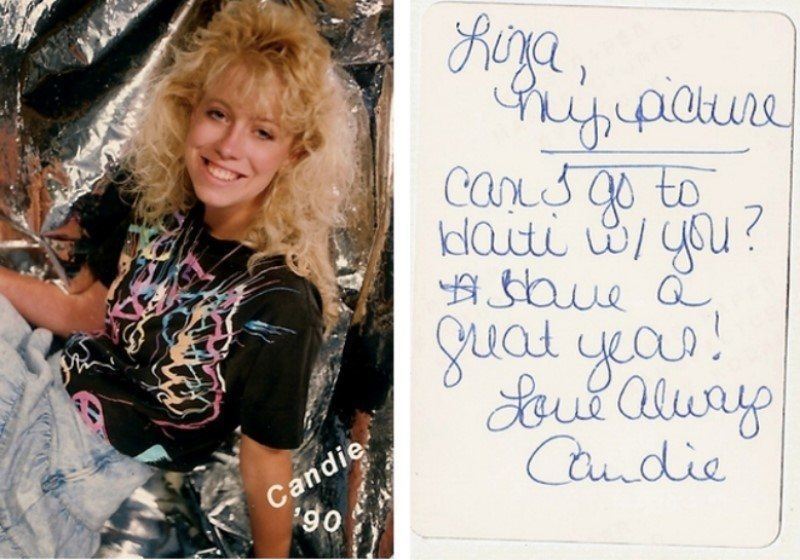 Candie
'90
Liza,
my picture
Can I go to
Haiti w/ you?
Have a
great year!
Love Always
Candie